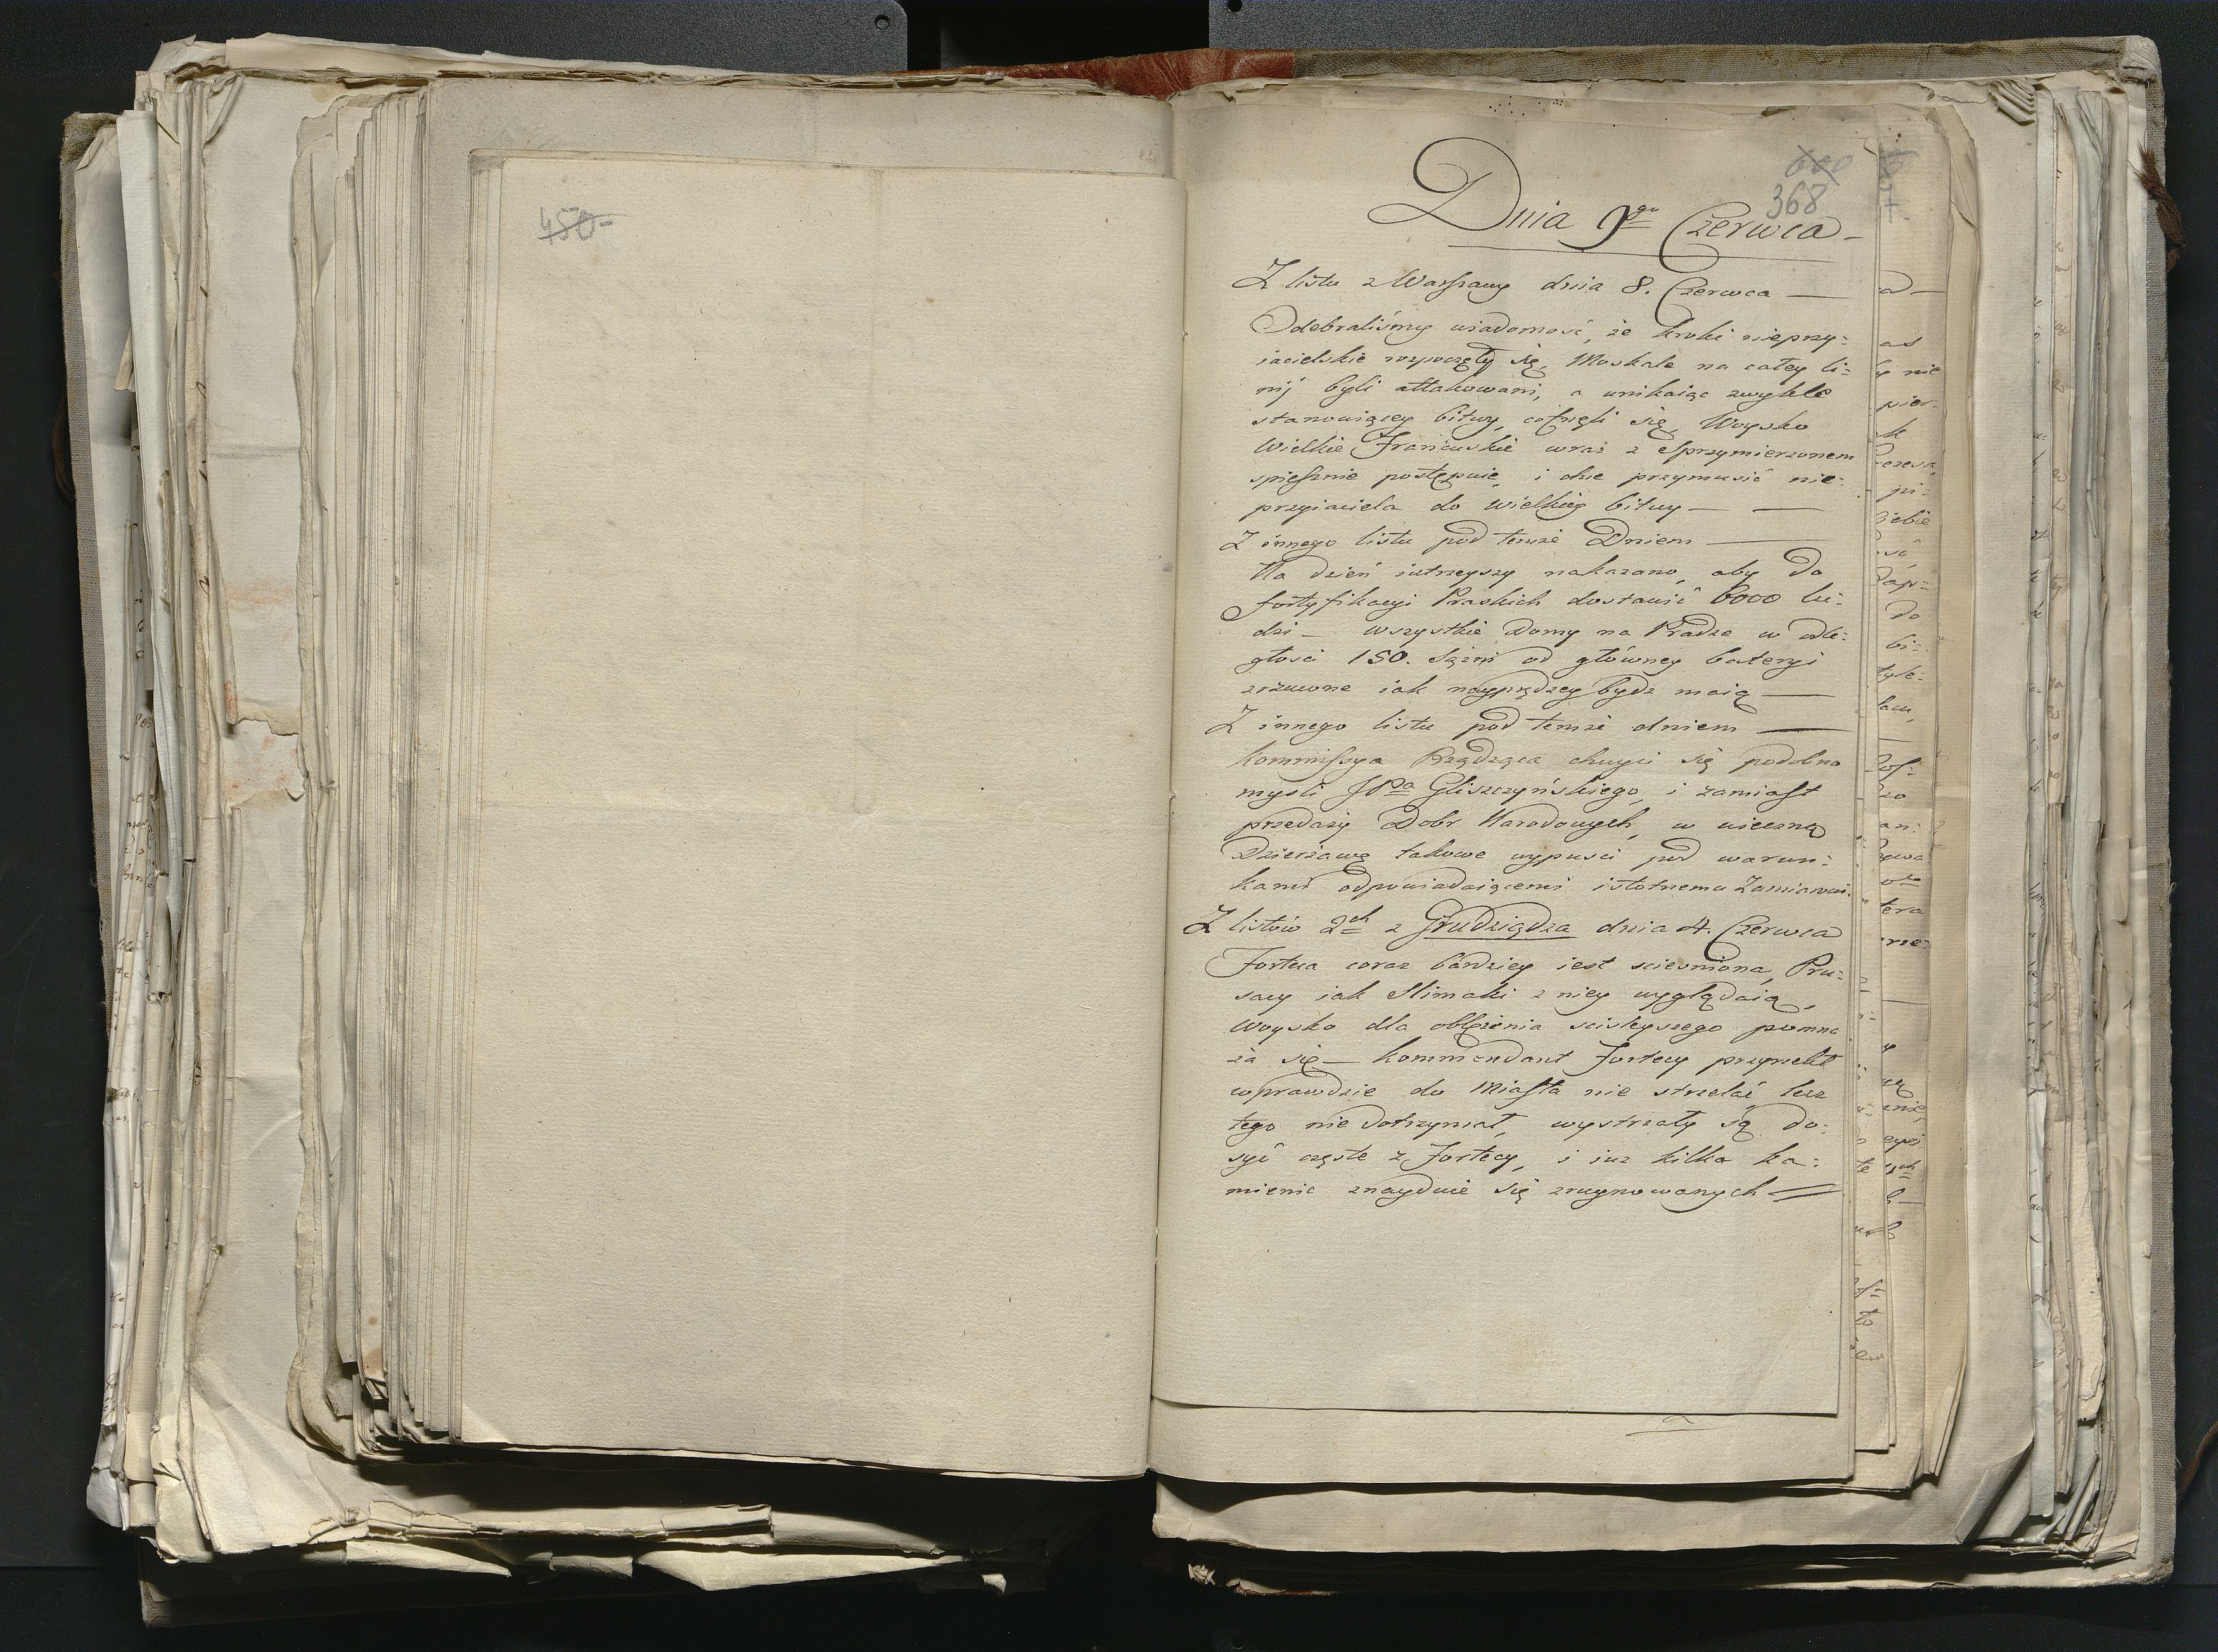 450-
600
368
Dnia 9go Czerwca -
Z listu z Warszawy dnia 8. Czerwca —
Odebraliśmy wiadomość, że kroki nieprzy:
iacielskie rozpoczęły się, Moskale na całey li:
nij byli attakowani, a unikaiąc zwykle
stanowiącey bitwy, cofnęli się, Woysko
Wielkie Francuskie wraz z Sprzymierzonem
spiesznie postępuie, i chce przymusić nie:
przyiaciela do wielkiey bitwy — —
Z innego listu pod temże Dniem —
Na dzień iutrzeyszy nakazano, aby do
fortyfikacyi Praskich dostawić 6000 lu:
dzi — wszystkie Domy na Pradze w odle:
głosci 150. Sążni od główney bateryi
zrzucone iak nayprędzey bydz maią —
Z innego listu pod temże dniem —
Kommissya Rządząca chwyci się podobno
mysli JPa Gliszczyńskiego, i zamiast
przedaży Dobr Narodowych, w wieczną
Dzierżawę takowe wypusci pod warun:
kami odpowiadaiącemi istotnemu Zamiarowi.
Z listów 2ch z Grudziądza dnia 4. Czerwca
Forteca coraz bardziey iest sciesniona, Pru:
sacy iak Slimaki z niey wyglądaią,
Woysko dla oblężenia scisleyszego pomna
ża się — Kommendant Fortecy przyrzekł
wprawdzie do Miasta nie strzelać, lecz
tego nie dotrzymał, wystrzały są do:
syć częste z Fortecy, i iuż kilka ka:
mienic znayduie się zruynowanych